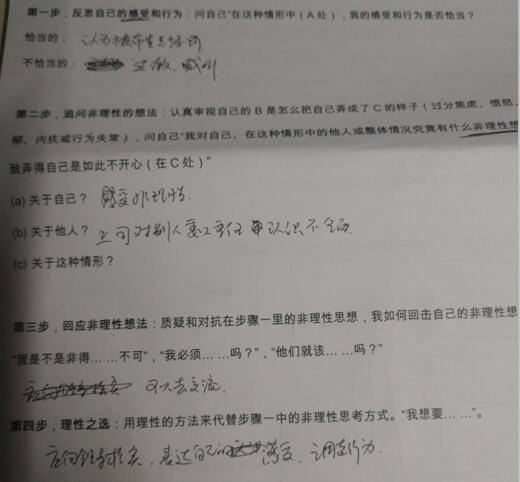 第一步，反思自己的感受和行为：问自己“在这种情形中（A处），我的感受和行为是否恰当？
恰当的：认为被
不恰当的：
第二步，追问非理性的想法：认真审视自己的B是怎么把自己弄成了C的样子（过分焦虑、愤怒、
郁、内疚或行为失常），问自己“我对自己、在这种情形中的他人或整体情况究竟有什么非理性想
致弄得自己是如此不开心（在C处）”
(a) 关于自己？感受非理性。
(b) 关于他人？上司对别人 认识不全面
(c) 关于这种情形？
第三步，回应非理性想法：质疑和对抗在步骤一里的非理性思想，我如何回击自己的非理性想
“我是不是非得……不可”，“我必须……吗？”，“他们就该……吗？”
可以去交流。
第四步，理性之选：用理性的方法来代替步骤一中的非理性思考方式。“我想要……”。
应向领导核实，表达自己的感受、调整行为.